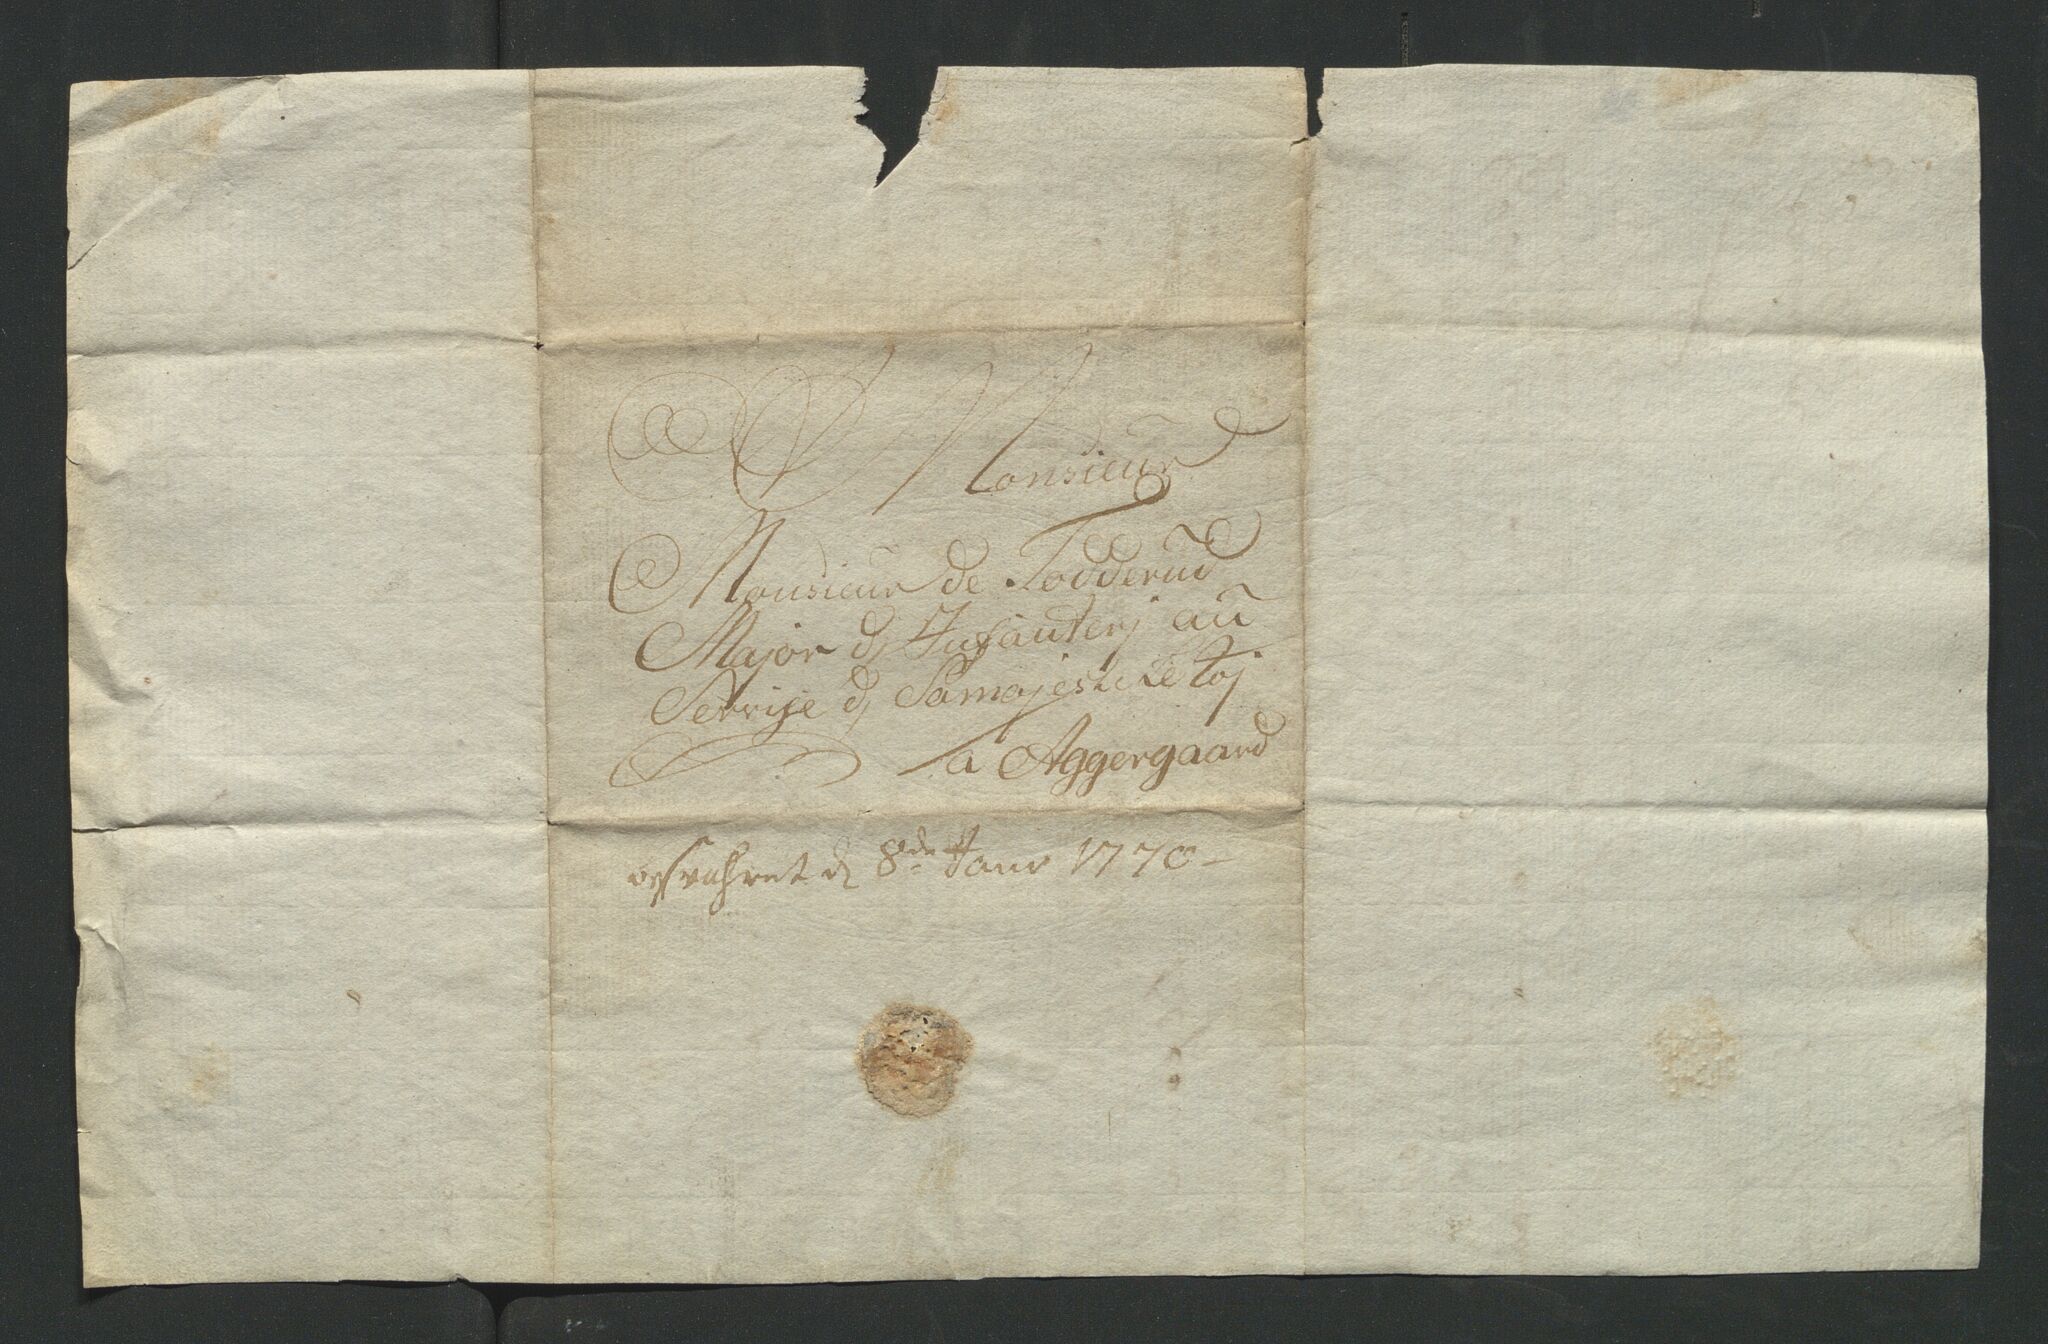 A Monsieur
Monsieur de Todderud
Major d, Infanterj au
Servise d, Samajeste Le Roj
a Aggergaard
d 8de Janr 1770